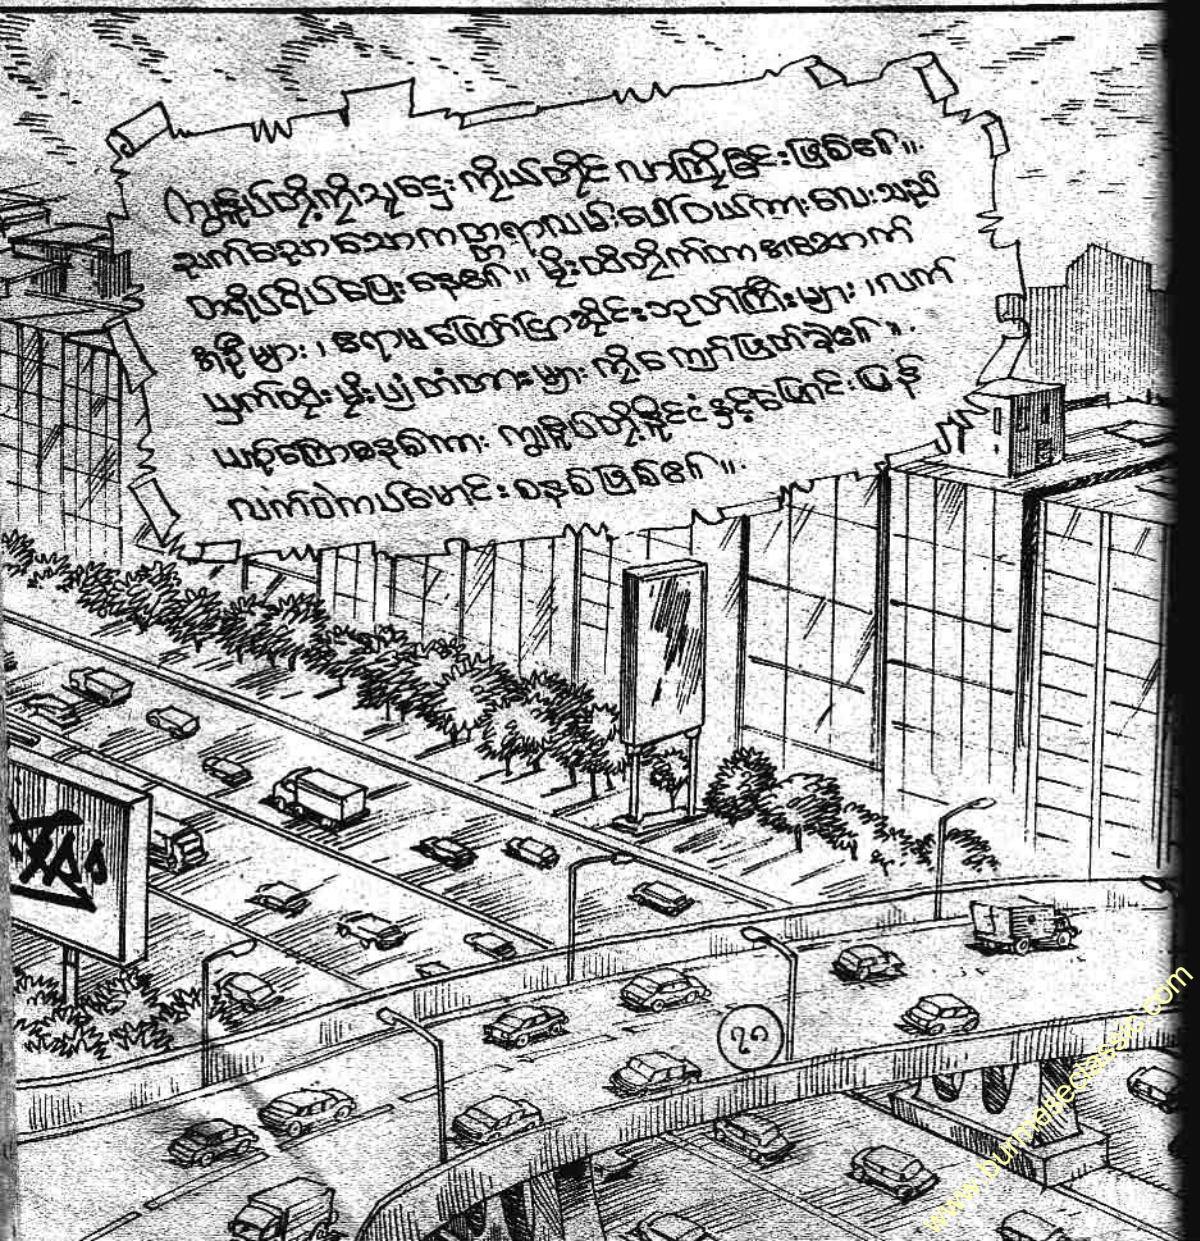 ကျွန်ုပ်တို့ကိုသူဌေး ကိုယ်တိုင် လာကြိုခြင်းဖြစ်၏။
သက်သောင့်သော ကတ္တရာလမ်းပေါ်ဝယ်ကားလေးသည်
တရိပ်ရိပ်ပြေးနေ၏။ မိုးထိတိုက်တာအဆောက်
အဦများ၊ ရောမကြော်ငြာဆိုင်းဘုတ်ကြီးများ၊ လက်
မျက်တိုးမိုးပျံတံတားများကိုကျော်ဖြတ်ခဲ့၏။
ယခုကြောစနစ်ကား ကျွန်ုပ်တို့နိုင်ငံနှင့်ပြောင်းပြန်
လက်ဝဲကပ်မောင်းစနစ်ဖြစ်၏။
၃၁
www.burmeseclassic.com